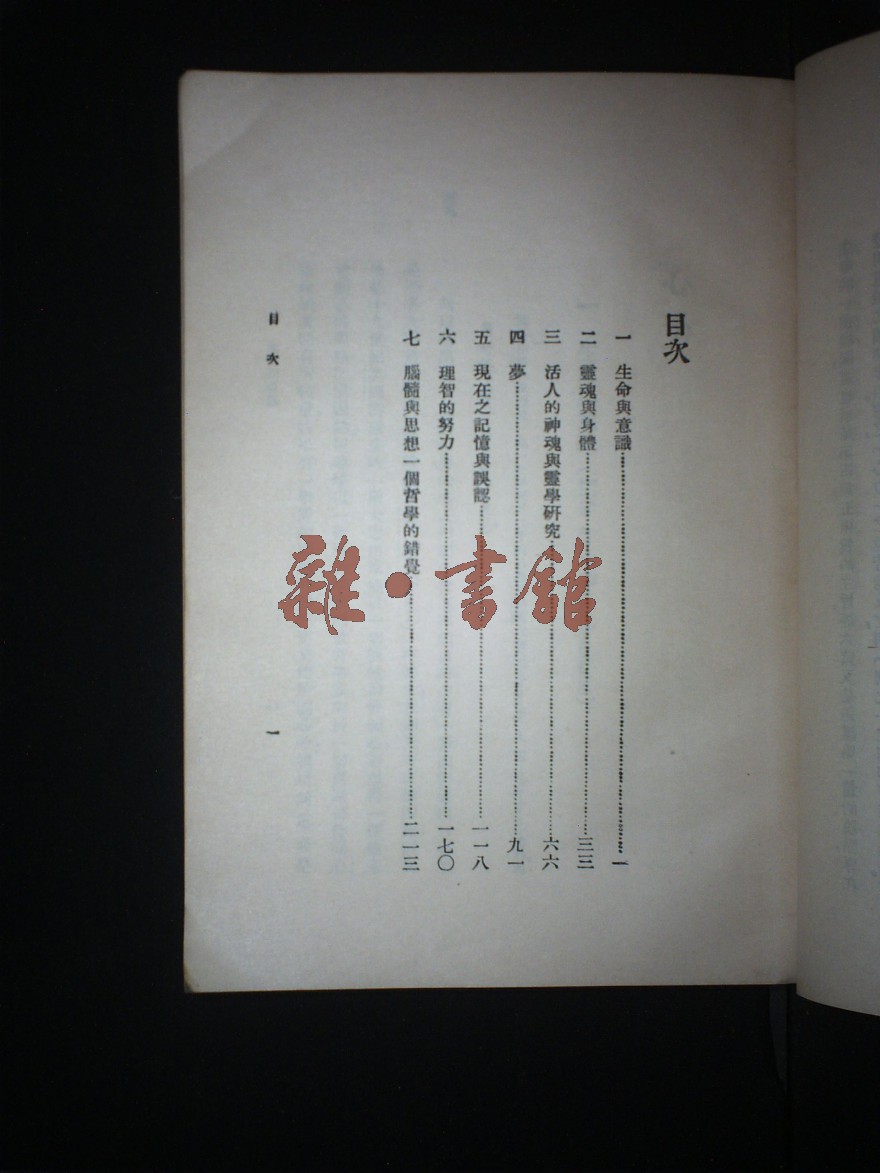 目次
一 生命與意識 一
二 靈魂與身體 三三
三 活人的神魂與靈學研究 六六
四 夢 九一
五 現在之記憶與誤認 一一八
六 理智的努力 一七〇
七 腦髓與思想一個哲學的錯覺 二一三
目次 一
雜·書館